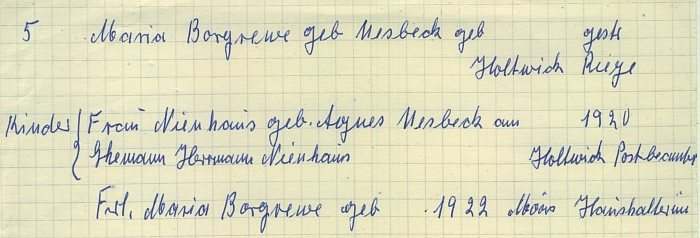 5 Maria Borgrewe geb Nesbeck geb gest
Holtwick Riege
Kinder Frau Nienhaus geb. Agnes Nesbeck am 1920
Ehemann Hermann Nienhaus Holtwick Postbeamter
Frl. Maria Borgrewe geb .1922 Haushälterin